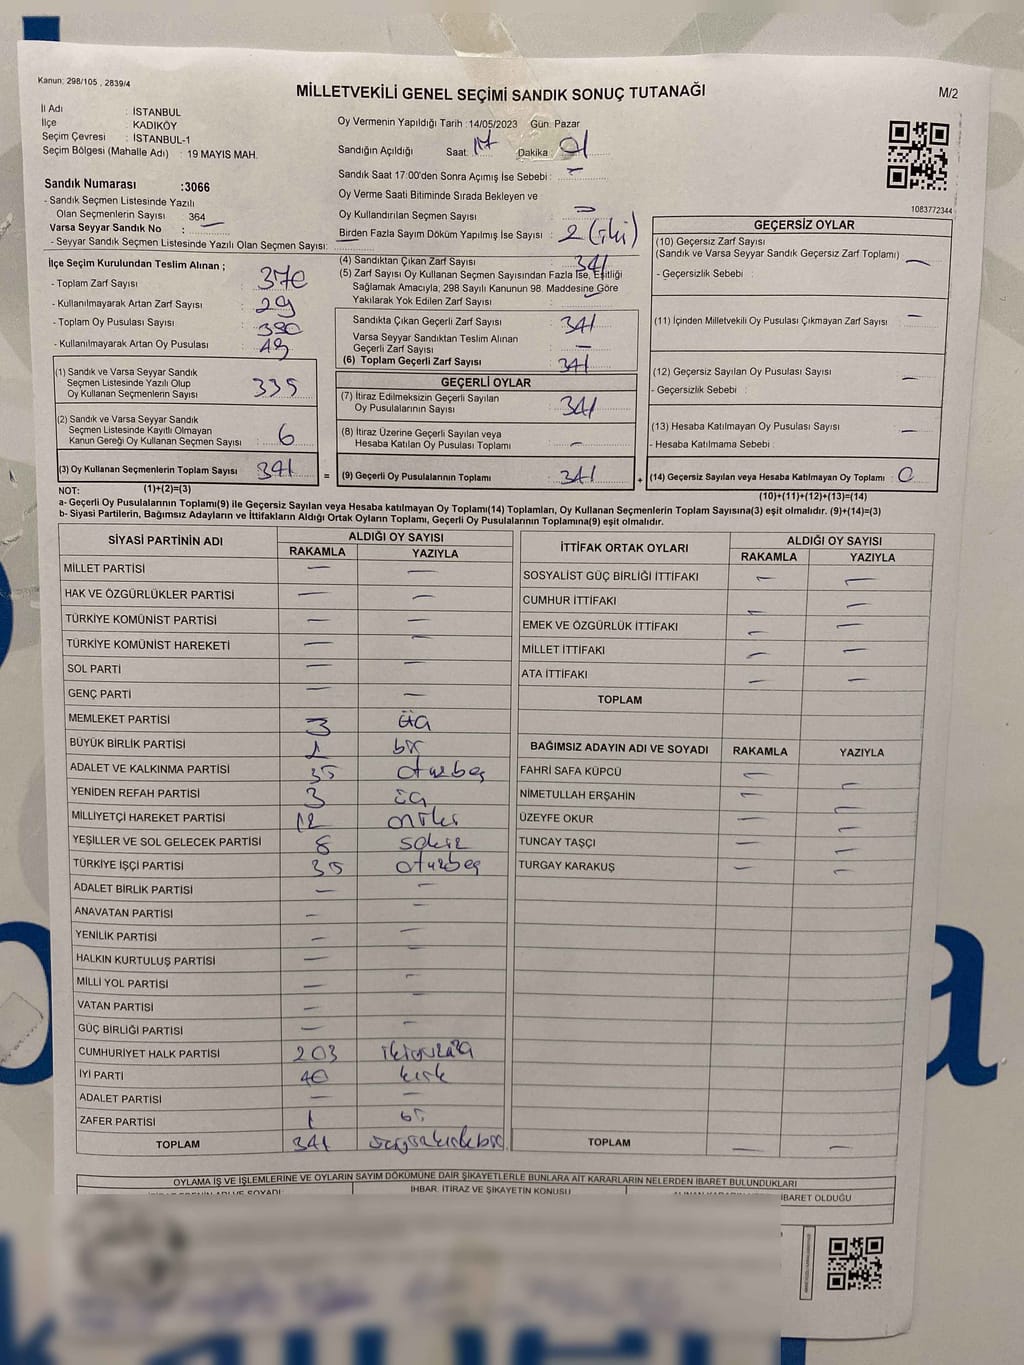 Kanun: 298/105 , 2839/4
MİLLETVEKİLİ GENEL SEÇİMİ SANDIK SONUÇ TUTANAĞI
M/2
İl Adı : İSTANBUL
İlçe : KADIKÖY
Seçim Çevresi : İSTANBUL-1
Seçim Bölgesi (Mahalle Adı) : 19 MAYIS MAH.
Oy Vermenin Yapıldığı Tarih :14/05/2023 Gün: Pazar
Sandığın Açıldığı Saat: 17 Dakika 01
Sandık Saat 17:00'den Sonra Açımış İse Sebebi : —
Oy Verme Saati Bitiminde Sırada Bekleyen ve
Oy Kullandırılan Seçmen Sayısı : —
Birden Fazla Sayım Döküm Yapılmış İse Sayısı : 2 (iki)
1083772344
Sandık Numarası :3066
- Sandık Seçmen Listesinde Yazılı
Olan Seçmenlerin Sayısı : 364
Varsa Seyyar Sandık No : —
- Seyyar Sandık Seçmen Listesinde Yazılı Olan Seçmen Sayısı:
İlçe Seçim Kurulundan Teslim Alınan ;
- Toplam Zarf Sayısı : 370
- Kullanılmayarak Artan Zarf Sayısı : 29
- Toplam Oy Pusulası Sayısı : 390
- Kullanılmayarak Artan Oy Pusulası : 49
(1) Sandık ve Varsa Seyyar Sandık
Seçmen Listesinde Yazılı Olup
Oy Kullanan Seçmenlerin Sayısı : 335
(2) Sandık ve Varsa Seyyar Sandık
Seçmen Listesinde Kayıtlı Olmayan
Kanun Gereği Oy Kullanan Seçmen Sayısı : 6
(3) Oy Kullanan Seçmenlerin Toplam Sayısı : 341
(1)+(2)=(3)
(4) Sandıktan Çıkan Zarf Sayısı : 341
(5) Zarf Sayısı Oy Kullanan Seçmen Sayısından Fazla İse, Eşitliği
Sağlamak Amacıyla, 298 Sayılı Kanunun 98. Maddesine Göre
Yakılarak Yok Edilen Zarf Sayısı : —
Sandıkta Çıkan Geçerli Zarf Sayısı : 341
Varsa Seyyar Sandıktan Teslim Alınan
Geçerli Zarf Sayısı : —
(6) Toplam Geçerli Zarf Sayısı : 341
GEÇERLİ OYLAR
(7) İtiraz Edilmeksizin Geçerli Sayılan
Oy Pusulalarının Sayısı : 341
(8) İtiraz Üzerine Geçerli Sayılan veya
Hesaba Katılan Oy Pusulası Toplamı : —
= (9) Geçerli Oy Pusulalarının Toplamı : 341
GEÇERSİZ OYLAR
(10) Geçersiz Zarf Sayısı
(Sandık ve Varsa Seyyar Sandık Geçersiz Zarf Toplamı) : —
- Geçersizlik Sebebi :
(11) İçinden Milletvekili Oy Pusulası Çıkmayan Zarf Sayısı : —
(12) Geçersiz Sayılan Oy Pusulası Sayısı : —
- Geçersizlik Sebebi :
(13) Hesaba Katılmayan Oy Pusulası Sayısı : —
- Hesaba Katılmama Sebebi :
+ (14) Geçersiz Sayılan veya Hesaba Katılmayan Oy Toplamı : 0
(10)+(11)+(12)+(13)=(14)
NOT:
a- Geçerli Oy Pusulalarının Toplamı(9) ile Geçersiz Sayılan veya Hesaba katılmayan Oy Toplamı(14) Toplamları, Oy Kullanan Seçmenlerin Toplam Sayısına(3) eşit olmalıdır. (9)+(14)=(3)
b- Siyasi Partilerin, Bağımsız Adayların ve İttifakların Aldığı Ortak Oyların Toplamı, Geçerli Oy Pusulalarının Toplamına(9) eşit olmalıdır.
SİYASİ PARTİNİN ADI ALDIĞI OY SAYISI
RAKAMLA YAZIYLA
MİLLET PARTİSİ — —
HAK VE ÖZGÜRLÜKLER PARTİSİ — —
TÜRKİYE KOMÜNİST PARTİSİ — —
TÜRKİYE KOMÜNİST HAREKETİ — —
SOL PARTİ — —
GENÇ PARTİ — —
MEMLEKET PARTİSİ 3 üç
BÜYÜK BİRLİK PARTİSİ 1 bir
ADALET VE KALKINMA PARTİSİ 35 otuzbeş
YENİDEN REFAH PARTİSİ 3 üç
MİLLİYETÇİ HAREKET PARTİSİ 12 oniki
YEŞİLLER VE SOL GELECEK PARTİSİ 8 sekiz
TÜRKİYE İŞÇİ PARTİSİ 35 otuzbeş
ADALET BİRLİK PARTİSİ — —
ANAVATAN PARTİSİ — —
YENİLİK PARTİSİ — —
HALKIN KURTULUŞ PARTİSİ — —
MİLLİ YOL PARTİSİ — —
VATAN PARTİSİ — —
GÜÇ BİRLİĞİ PARTİSİ — —
CUMHURİYET HALK PARTİSİ 203 ikiyüzüç
İYİ PARTİ 40 kırk
ADALET PARTİSİ — —
ZAFER PARTİSİ 1 bir
TOPLAM 341 üçyüzkırkbir
İTTİFAK ORTAK OYLARI ALDIĞI OY SAYISI
RAKAMLA YAZIYLA
SOSYALİST GÜÇ BİRLİĞİ İTTİFAKI — —
CUMHUR İTTİFAKI — —
EMEK VE ÖZGÜRLÜK İTTİFAKI — —
MİLLET İTTİFAKI — —
ATA İTTİFAKI — —
TOPLAM
BAĞIMSIZ ADAYIN ADI VE SOYADI RAKAMLA YAZIYLA
FAHRİ SAFA KÜPCÜ — —
NİMETULLAH ERŞAHİN — —
ÜZEYFE OKUR — —
TUNCAY TAŞÇI — —
TURGAY KARAKUŞ — —
TOPLAM — —
OYLAMA İŞ VE İŞLEMLERİNE VE OYLARIN SAYIM DÖKÜMÜNE DAİR ŞİKAYETLERLE BUNLARA AİT KARARLARIN NELERDEN İBARET BULUNDUKLARI
İHBAR, İTİRAZ VE ŞİKAYETİN KONUSU
İBARET OLDUĞU